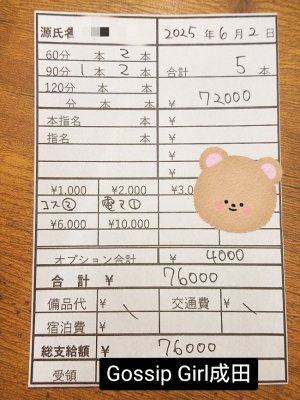 源氏名 2025年6月2日
60分 本 2本
90分 1本 2本 合計 5本
120分 本 ¥ 72000
分 本 ¥
本指名 本 ¥
指名 本 ¥
¥
¥1,000 ¥2,000 ¥3,0
コス② 電マ①
¥6,000 ¥10,000
オプション合計 ¥ 4000
合計 ¥ 76000
備品代 ¥ 交通費 ¥
宿泊費 ¥
総支給額 ¥ 76000
受領
Gossip Girl成田